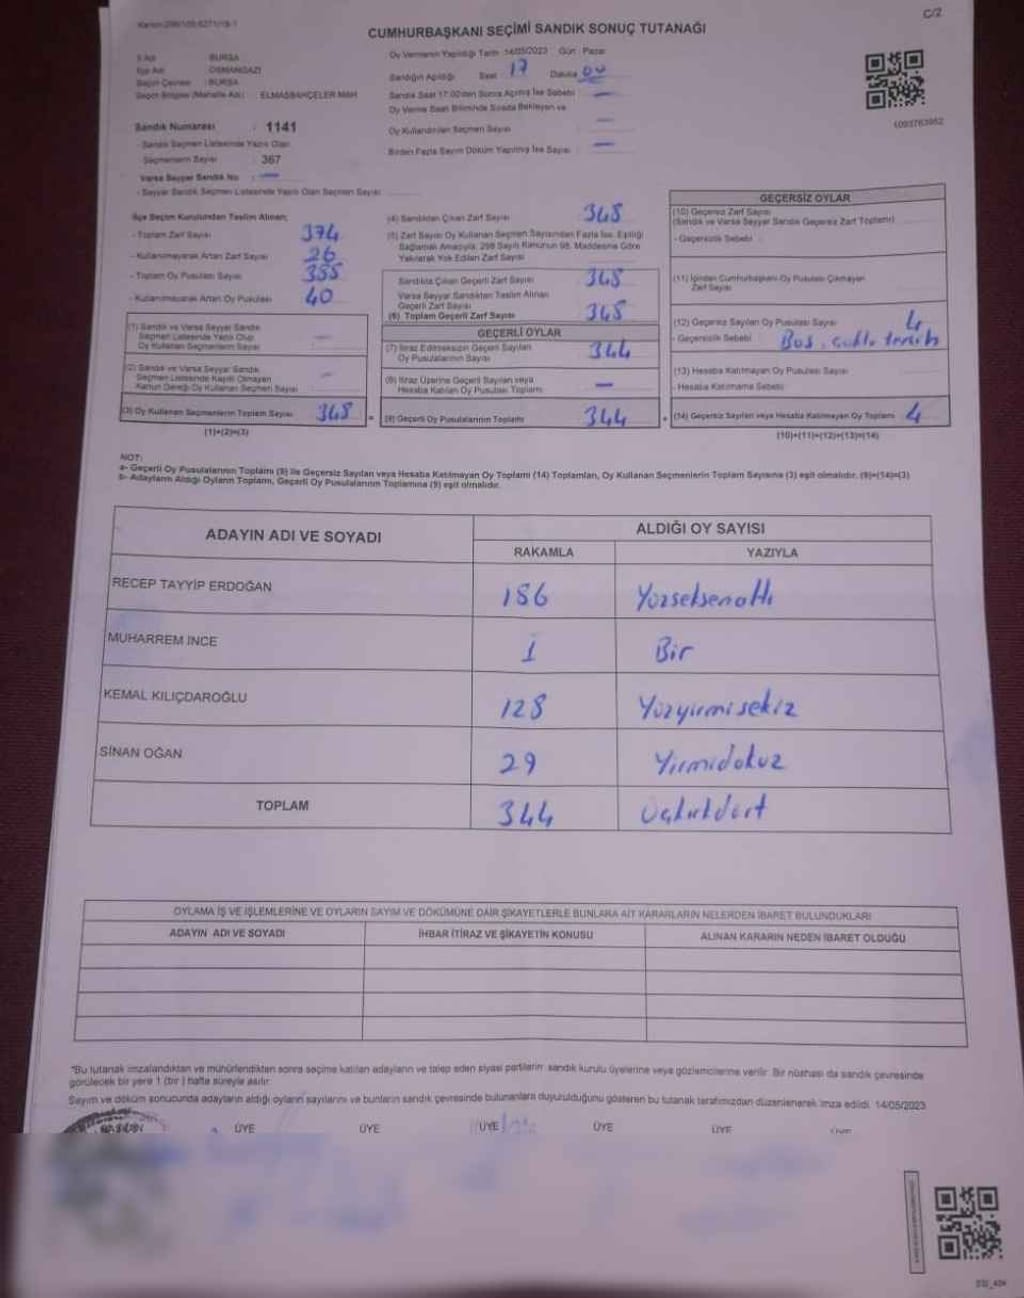 C/2
CUMHURBAŞKANI SEÇİMİ SANDIK SONUÇ TUTANAĞI
İl Adı BURSA
İlçe Adı OSMANGAZİ
Seçim Çevresi : BURSA
Seçim Bölgesi (Mahalle Adı) : ELMASBAHÇELER MAH
Sandık Numarası : 1141
- Sandık Seçmen Listesinde Yazılı Olan
Seçmenlerin Sayısı : 367
Varsa Seyyar Sandık No : —
- Seyyar Sandık Seçmen Listesinde Yazılı Olan Seçmen Sayısı
Oy Vermenin Yapıldığı Tarih 14/05/2023 Gün Pazar
Sandığın Açıldığı Saat 17 Dakika 00
Sandık Saat 17:00'den Sonra Açılmış İse Sebebi —
Oy Verme Saati Bitiminde Sırada Bekleyen ve
Oy Kullandırılan Seçmen Sayısı —
Birden Fazla Sayım Döküm Yapılmış İse Sayısı —
1093763982
İlçe Seçim Kurulundan Teslim Alınan;
- Toplam Zarf Sayısı 374
- Kullanılmayarak Artan Zarf Sayısı 26
- Toplam Oy Pusulası Sayısı 355
- Kullanılmayarak Artan Oy Pusulası 40
(1) Sandık ve Varsa Seyyar Sandık
Seçmen Listesinde Yazılı Olup
Oy Kullanan Seçmen Sayısı —
(2) Sandık ve Varsa Seyyar Sandık
Seçmen Listesinde Kayıtlı Olmayan
Kanun Gereği Oy Kullanan Seçmen Sayısı —
(3) Oy Kullanan Seçmenlerin Toplam Sayısı 348
(1)+(2)=(3)
(4) Sandıktan Çıkan Zarf Sayısı 348
(5) Zarf Sayısı Oy Kullanan Seçmen Sayısından Fazla İse, Eşitliği
Sağlamak Amacıyla, 298 Sayılı Kanunun 98. Maddesine Göre
Yakılarak Yok Edilen Zarf Sayısı
Sandıkta Çıkan Geçerli Zarf Sayısı 348
Varsa Seyyar Sandıktan Teslim Alınan
Geçerli Zarf Sayısı
(6) Toplam Geçerli Zarf Sayısı 348
GEÇERLİ OYLAR
(7) İtiraz Edilmeksizin Geçerli Sayılan
Oy Pusulalarının Sayısı 344
(8) İtiraz Üzerine Geçerli Sayılan veya
Hesaba Katılan Oy Pusulası Toplamı —
(9) Geçerli Oy Pusulalarının Toplamı 344
GEÇERSİZ OYLAR
(10) Geçersiz Zarf Sayısı
(Sandık ve Varsa Seyyar Sandık Geçersiz Zarf Toplamı)
- Geçersizlik Sebebi
(11) İçinden Cumhurbaşkanı Oy Pusulası Çıkmayan
Zarf Sayısı
(12) Geçersiz Sayılan Oy Pusulası Sayısı 4
- Geçersizlik Sebebi Boş, çoklu tercih
(13) Hesaba Katılmayan Oy Pusulası Sayısı
- Hesaba Katılmama Sebebi
(14) Geçersiz Sayılan veya Hesaba Katılmayan Oy Toplamı 4
(10)+(11)+(12)+(13)=(14)
NOT:
a- Geçerli Oy Pusulalarının Toplamı (9) ile Geçersiz Sayılan veya Hesaba Katılmayan Oy Toplamı (14) Toplamları, Oy Kullanan Seçmenlerin Toplam Sayısına (3) eşit olmalıdır. (9)+(14)=(3)
b- Adayların Aldığı Oyların Toplamı, Geçerli Oy Pusulalarının Toplamına (9) eşit olmalıdır.
ADAYIN ADI VE SOYADI ALDIĞI OY SAYISI
RAKAMLA YAZIYLA
RECEP TAYYİP ERDOĞAN 186 Yüzseksenaltı
MUHARREM İNCE 1 Bir
KEMAL KILIÇDAROĞLU 128 Yüzyirmisekiz
SİNAN OĞAN 29 Yirmidokuz
TOPLAM 344
OYLAMA İŞ VE İŞLEMLERİNE VE OYLARIN SAYIM VE DÖKÜMÜNE DAİR ŞİKAYETLERLE BUNLARA AİT KARARLARIN NELERDEN İBARET BULUNDUKLARI
ADAYIN ADI VE SOYADI İHBAR İTİRAZ VE ŞİKAYETİN KONUSU ALINAN KARARIN NEDEN İBARET OLDUĞU
*Bu tutanak imzalandıktan ve mühürlendikten sonra seçime katılan adayların ve talep eden siyasi partilerin sandık kurulu üyelerine veya gözlemcilerine verilir. Bir nüshası da sandık çevresinde
görülecek bir yere 1 (bir) hafta süreyle asılır.
Sayım ve döküm sonucunda adayların aldığı oyların sayılarını ve bunların sandık çevresinde bulunanlara duyurulduğunu gösteren bu tutanak tarafımızdan düzenlenerek imza edildi. 14/05/2023
ÜYE ÜYE ÜYE ÜYE ÜYE